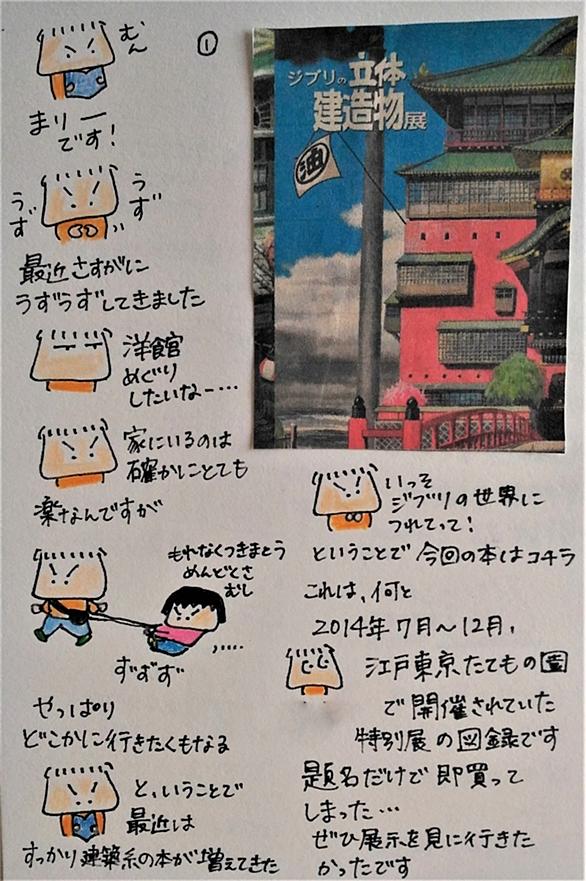 ①
むん
まりー
です！
うず
うず
最近さすがに
うずうずしてきました
洋館
めぐり
したいなー…
家にいるのは
確かにとても
楽なんですが
もれなくつきまとう
めんどくさ
むし
ずずず
やっぱり
どこかに行きたくもなる
と、いうことで
最近は
すっかり建築系の本が増えてきた
ジブリの立体
建造物展
油
いっそ
ジブリの世界に
つれてって！
ということで今回の本はコチラ
これは、何と
2014年7月～12月、
江戸東京たてもの園
で開催されていた
特別展の図録です
題名だけで即買って
しまった…
ぜひ展示を見に行きた
かったです